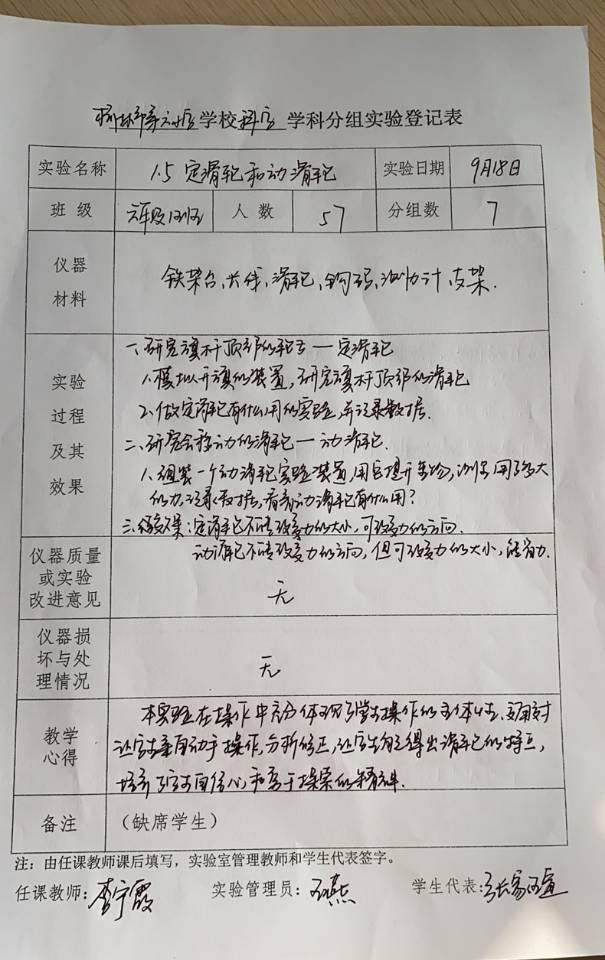 学校科学学科分组实验登记表
实验名称 1.5 定滑轮和动滑轮 实验日期 9月18日
班级 六年级 班 人数 57 分组数 7
仪器材料 铁架台、 线、滑轮、钩码、测力计、支架.
实验过程及其效果
一、研究旗杆顶部的 — 定滑轮
1. 模拟升旗的装置,研究旗杆顶部的滑轮
2. 做定滑轮有什么用的实验,并记录数据.
二、研究会移动的滑轮 — 动滑轮.
1. 组装一个动滑轮实验装置,用它提升重物, 用了多大
的力,记录数据,看看动滑轮有什么用?
三、实验效果:定滑轮不能改变力的大小,可改变力的方向.
动滑轮不能改变力的方向,但可改变力的大小,能省力.
仪器质量或实验改进意见 无
仪器损坏与处理情况 无
教学心得
本实验在操作中充分体现了学生操作的主体性,
让学生亲自动手操作,分析 ,让学生自己得出滑轮的特点,
培养了学生自信心和 探索的精神.
备注 (缺席学生)
注:由任课教师课后填写,实验室管理教师和学生代表签字。
任课教师:李宁霞 实验管理员:王燕 学生代表: